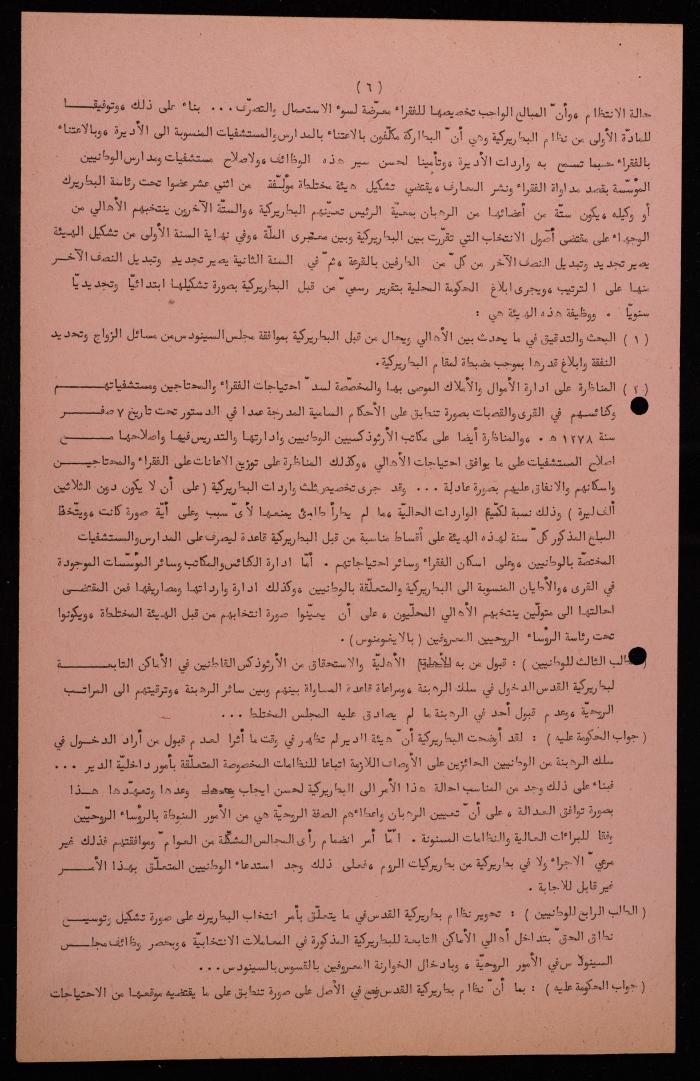 ( ٦ )
حالة الانتظام ،وأنّ المبالغ الواجب تخصيصها للفقراء معرّضة لسوء الاستعمال والتصرّف ... بناء على ذلك ،وتوفيقـــا
للمادّة الأولى من نظام البطريركية وهي أنّ البطاركة مكلّفون بالاعتناء بالمدارس والمستشفيات المنسوبة الى الأديرة ،وبالاعتناء
بالفقراء حسبما تسمح به واردات الأديرة ،وتأمينا لحسن سير هذه الوظائف ،ولاصلاح مستشفيات ومدارس الوطنيين
المؤسّسة بقصد مداواة الفقراء ونشر المعارف ،يقتضي تشكيل هيئة مختلطة مؤلّفة من اثني عشر عضوا تحت رئاسة البطريرك
أو وكيله ،يكون ستّة من أعضائها من الرهبان بمعيّة الرئيس تعيّنهم البطريركية ،والستّة الآخرون ينتخبهم الأهالي من
الوجهاء على مقتضى أصول الانتخاب التي تقرّرت بين البطريركية وبين معتبرى الملّة ،وفي نهاية السنة الأولى من تشكيل الهيئة
يصير تجديد وتبديل النصف الآخر من كلّ من الطرفين بالقرعة ،ثمّ في السنة الثانية يصير تجديد وتبديل النصف الآخـر
منها على الترتيب ،ويجرى ابلاغ الحكومة المحلية بتقرير رسميّ من قبل البطريركية بصورة تشكيلها ابتدائيّا وتجديديّا
سنويّا . ووظيفة هذه الهيئة هي :
( ١ ) البحث والتدقيق في ما يحدث بين الأهالي ويحال من قبل البطريركية بموافقة مجلس السينودس من مسائل الزواج وتحديد
النفقة وابلاغ قدرها بموجب مضبطة لمقام البطريركية.
( ٢ ) المناظرة على ادارة الأموال والأملاك الموصى بها والمخصّصة لسدّ احتياجات الفقراء والمحتاجين ومستشفياتهــم
وكنائسهم في القرى والقصبات بصورة تنطبق على الأحكام السامية المدرجة عمدا في الدستور تحت تاريخ ٧ صفــر
سنة ١٢٧٨ هـ . ،والمناظرة أيضا على مكاتب الأرثوذكسيين الوطنيين وادارتها والتدريس فيها واصلاحها مـــع
اصلاح المستشفيات على ما يوافق احتياجات الأهالي ،وكذلك المناظرة على توزيع الاعانات على الفقراء والمحتاجيــن
واسكانهم والانفاق عليهم بصورة عادلة ... وقد جرى تخصيص ثلث واردات البطريركية ( على أن لا يكون دون الثلاثين
ألف ليرة ) وذلك نسبة لكمّية الواردات الحاليّة ،ما لم يطرأ طارئ يمنعها لأىّ سبب وعلى أيّة صورة كانت ،ويتّخذ
المبلغ المذكور كلّ سنة لهذه الهيئة على أقساط مناسبة من قبل البطريركية قاعدة ليصرف على المدارس والمستشفيات
المختصّة بالوطنيين ،وعلى اسكان الفقراء وسائر احتياجاتهم . أمّا ادارة الكنائس والمكاتب وسائر المؤسّسات الموجودة
في القرى ،والأطيان المنسوبة الى البطريركية والمتعلّقة بالوطنيين ،وكذلك ادارة وارداتها ومصاريفها فمن المقتضــى
احالتها الى متولّين ينتخبهم الأهالي المحلّيون ، على أن يعيّنوا صورة انتخابهم من قبل الهيئة المختلطة ،ويكونوا
تحت رئاسة الرؤساء الروحيين المعروفين ( بالايغومنوس ) .
الطلب الثالث للوطنيين ) : قبول من به الأهلية والاستحقاق من الأرثوذكس القاطنين في الأماكن التابعـــة
لبطريركية القدس الدخول في سلك الرهبنة ،ومراعاة قاعدة المساواة بينهم وبين سائر الرهبنة ،وترقيتهم الى المراتـب
الروحيّة ،وعدم قبول أحد في الرهبنة ما لم يصادق عليه المجلس المختلط ...
( جواب الحكومة عليه ) : لقد أوضحت البطريركية أنّ هيئة الدير لم تظهر في وقت ما أثرا لعدم قبول من أراد الدخـول في
سلك الرهبنة من الوطنيين الحائزين على الأوصاف اللازمة اتباعا للنظامات المخصوصة المتعلّقة بأمور داخليّة الدير ...
فبناء على ذلك وجد من المناسب احالة هذا الأمر الى البطريركية لحسن ايجاب وعدها وتعهّدها هــذا
بصورة توافق العدالة ، على أنّ تعيين الرهبان واعطاءهم الصفة الروحيّة هي من الأمور المنوطة بالرؤساء الروحيّين
وفقا للبراءات العالية والنظامات المسنونة . امّا أمر انضمام رأى المجالس المشكّلة من العوامّ وموافقتهم فذلك غير
مرعيّ الاجراء ولا في بطريركية من بطريركيات الروم ،فعلى ذلك وجد استدعاء الوطنيين المتعلّق بهذا الأمــر
غير قابل للاجابة .
( الطلب الرابع للوطنيين ) : تحوير نظام بطريركية القدس في ما يتعلّق بأمر انتخاب البطريرك على صورة تشكيل وتوسيــع
نطاق الحقّ بتداخل أهالي الأماكن التابعة للبطريركية المذكورة في المعاملات الانتخابيّة ،وبحصر وظائف مجلــس
السينودس في الأمور الروحيّة ، وبادخال الخوارنة المعروفين بالقسوس بالسينودس...
( جواب الحكومة عليه ) : بما أنّ نظام بطريركية القدس وضع في الأصل على صورة تنطبق على ما يقتضيه موقعها من الاحتياجات